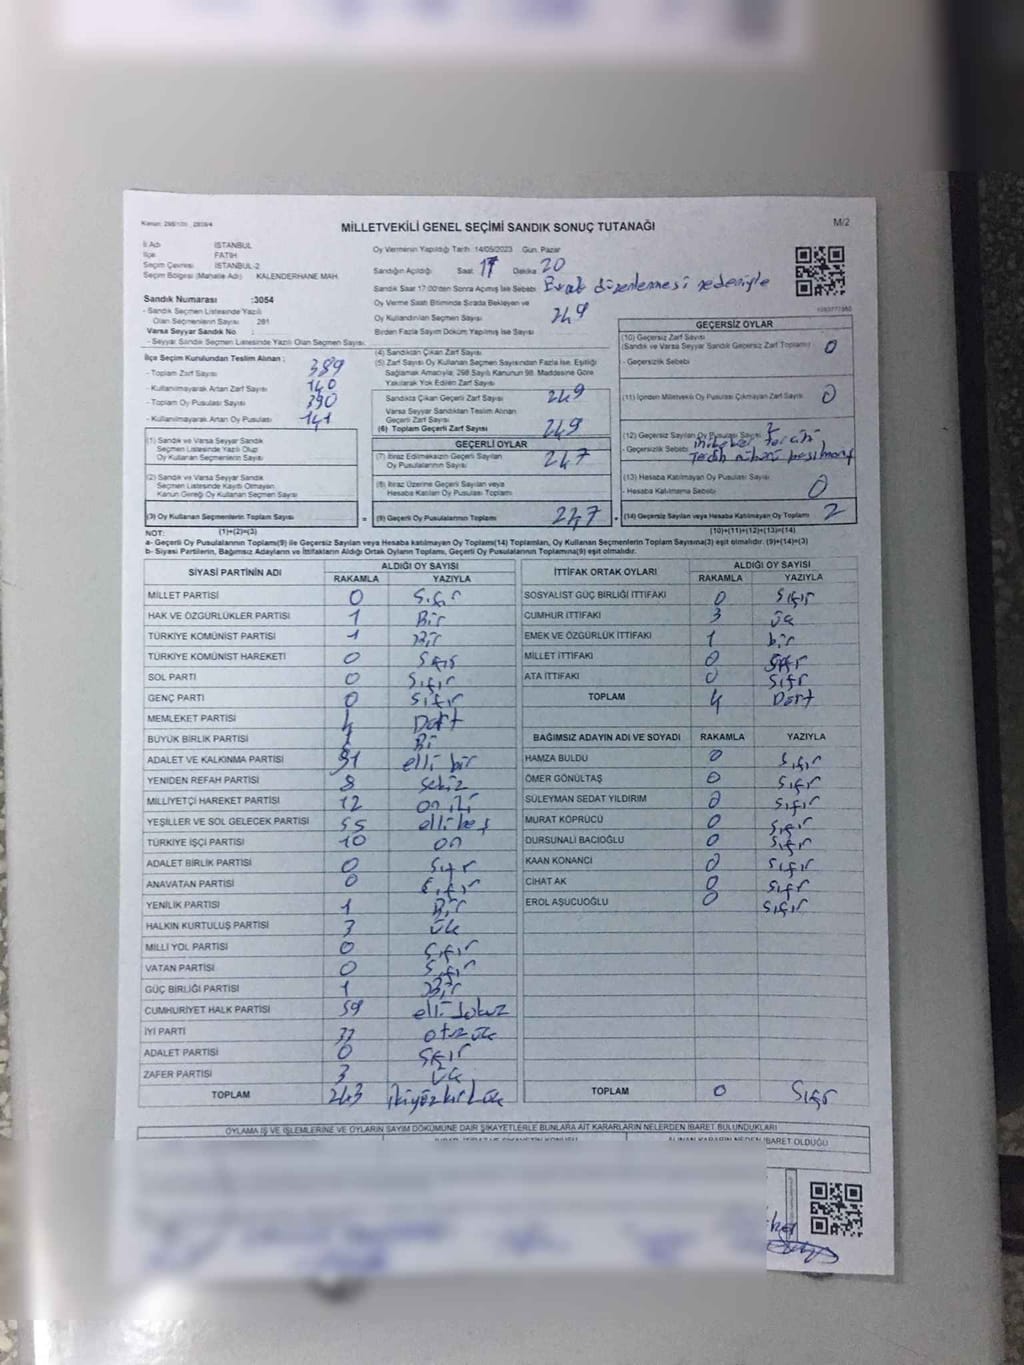 MİLLETVEKİLİ GENEL SEÇİMİ SANDIK SONUÇ TUTANAĞI
M/2
İl Adı İSTANBUL
İlçe FATİH
Seçim Çevresi İSTANBUL-2
Seçim Bölgesi (Mahalle Adı) KALENDERHANE MAH.
Sandık Numarası :3054
- Sandık Seçmen Listesinde Yazılı
Olan Seçmenlerin Sayısı
Varsa Seyyar Sandık No :
- Seyyar Sandık Seçmen Listesinde Yazılı Olan Seçmen Sayısı
Oy Vermenin Yapıldığı Tarih :14/05/2023 Gün: Pazar
Sandığın Açıldığı Saat 17 Dakika 20
Sandık Saat 17:00'den Sonra Açılmış İse Sebebi Evrak düzenlenmesi nedeniyle
Oy Verme Saati Bitiminde Sırada Bekleyen ve
Oy Kullandırılan Seçmen Sayısı 249
Birden Fazla Sayım Döküm Yapılmış İse Sayısı
İlçe Seçim Kurulundan Teslim Alınan :
- Toplam Zarf Sayısı 389
- Kullanılmayarak Artan Zarf Sayısı 140
- Toplam Oy Pusulası Sayısı 390
- Kullanılmayarak Artan Oy Pusulası 141
(1) Sandık ve Varsa Seyyar Sandık
Seçmen Listesinde Yazılı Olup
Oy Kullanan Seçmenlerin Sayısı
(2) Sandık ve Varsa Seyyar Sandık
Seçmen Listesinde Kayıtlı Olmayan
Kanun Gereği Oy Kullanan Seçmen Sayısı
(3) Oy Kullanan Seçmenlerin Toplam Sayısı
(4) Sandıktan Çıkan Zarf Sayısı
(5) Zarf Sayısı Oy Kullanan Seçmen Sayısından Fazla İse, Eşitliği
Sağlamak Amacıyla, 298 Sayılı Kanunun 98. Maddesine Göre
Yakılarak Yok Edilen Zarf Sayısı
Sandıkta Çıkan Geçerli Zarf Sayısı 249
Varsa Seyyar Sandıktan Teslim Alınan
Geçerli Zarf Sayısı
(6) Toplam Geçerli Zarf Sayısı 249
GEÇERLİ OYLAR
(7) İtiraz Edilmeksizin Geçerli Sayılan
Oy Pusulalarının Sayısı 247
(8) İtiraz Üzerine Geçerli Sayılan veya
Hesaba Katılan Oy Pusulası Toplamı
= (9) Geçerli Oy Pusulalarının Toplamı 247
GEÇERSİZ OYLAR
(10) Geçersiz Zarf Sayısı
(Sandık ve Varsa Seyyar Sandık Geçersiz Zarf Toplamı) 0
- Geçersizlik Sebebi
(11) İçinden Milletvekili Oy Pusulası Çıkmayan Zarf Sayısı 0
(12) Geçersiz Sayılan Oy Pusulası Sayısı 2
- Geçersizlik Sebebi
(13) Hesaba Katılmayan Oy Pusulası Sayısı
- Hesaba Katılmama Sebebi 0
+ (14) Geçersiz Sayılan veya Hesaba Katılmayan Oy Toplamı 2
NOT: (1)+(2)=(3) (10)+(11)+(12)+(13)=(14)
a- Geçerli Oy Pusulalarının Toplamı(9) ile Geçersiz Sayılan veya Hesaba katılmayan Oy Toplamı(14) Toplamları, Oy Kullanan Seçmenlerin Toplam Sayısına(3) eşit olmalıdır. (9)+(14)=(3)
b- Siyasi Partilerin, Bağımsız Adayların ve İttifakların Aldığı Ortak Oyların Toplamı, Geçerli Oy Pusulalarının Toplamına(9) eşit olmalıdır.
SİYASİ PARTİNİN ADI ALDIĞI OY SAYISI
RAKAMLA YAZIYLA
MİLLET PARTİSİ 0 Sıfır
HAK VE ÖZGÜRLÜKLER PARTİSİ 1 Bir
TÜRKİYE KOMÜNİST PARTİSİ 1 Bir
TÜRKİYE KOMÜNİST HAREKETİ 0 Sıfır
SOL PARTİ 0 Sıfır
GENÇ PARTİ 0 Sıfır
MEMLEKET PARTİSİ 4 Dört
BÜYÜK BİRLİK PARTİSİ 1 Bi
ADALET VE KALKINMA PARTİSİ 51 elli bir
YENİDEN REFAH PARTİSİ 8 sekiz
MİLLİYETÇİ HAREKET PARTİSİ 12 on iki
YEŞİLLER VE SOL GELECEK PARTİSİ 55 elli beş
TÜRKİYE İŞÇİ PARTİSİ 10 on
ADALET BİRLİK PARTİSİ 0 Sıfır
ANAVATAN PARTİSİ 0 Sıfır
YENİLİK PARTİSİ 1 Bir
HALKIN KURTULUŞ PARTİSİ 3 üç
MİLLİ YOL PARTİSİ 0 Sıfır
VATAN PARTİSİ 0 Sıfır
GÜÇ BİRLİĞİ PARTİSİ 1 Bir
CUMHURİYET HALK PARTİSİ 59 elli dokuz
İYİ PARTİ 33 otuz üç
ADALET PARTİSİ 0 Sıfır
ZAFER PARTİSİ 3 üç
TOPLAM 243 ikiyüzkırküç
İTTİFAK ORTAK OYLARI ALDIĞI OY SAYISI
RAKAMLA YAZIYLA
SOSYALİST GÜÇ BİRLİĞİ İTTİFAKI 0 Sıfır
CUMHUR İTTİFAKI 3 üç
EMEK VE ÖZGÜRLÜK İTTİFAKI 1 bir
MİLLET İTTİFAKI 0 Sıfır
ATA İTTİFAKI 0 Sıfır
TOPLAM 4 Dört
BAĞIMSIZ ADAYIN ADI VE SOYADI RAKAMLA YAZIYLA
HAMZA BULDU 0 Sıfır
ÖMER GÖNÜLTAŞ 0 Sıfır
SÜLEYMAN SEDAT YILDIRIM 0 Sıfır
MURAT KÖPRÜCÜ 0 Sıfır
DURSUNALİ BACIOĞLU 0 Sıfır
KAAN KONANCI 0 Sıfır
CİHAT AK 0 Sıfır
EROL AŞUCUOĞLU 0 Sıfır
TOPLAM 0 Sıfır
OYLAMA İŞ VE İŞLEMLERİNE VE OYLARIN SAYIM DÖKÜMÜNE DAİR ŞİKAYETLERLE BUNLARA AİT KARARLARIN NELERDEN İBARET BULUNDUKLARI